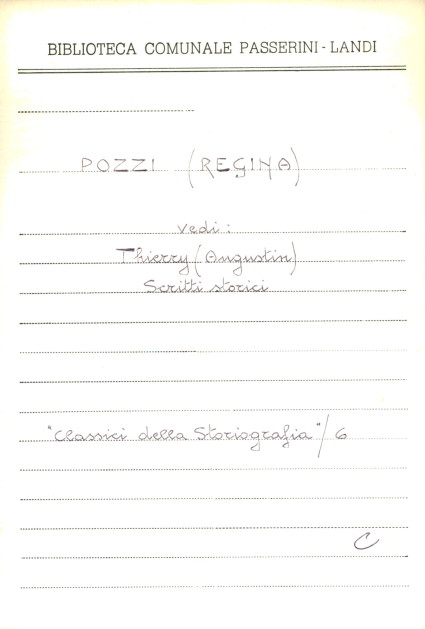 BIBLIOTECA COMUNALE PASSERINI-LANDI
POZZI (REGINA)
Vedi:
Thierry (Augustin)
Scritti storici
"Classici della Storiografia"/6
C